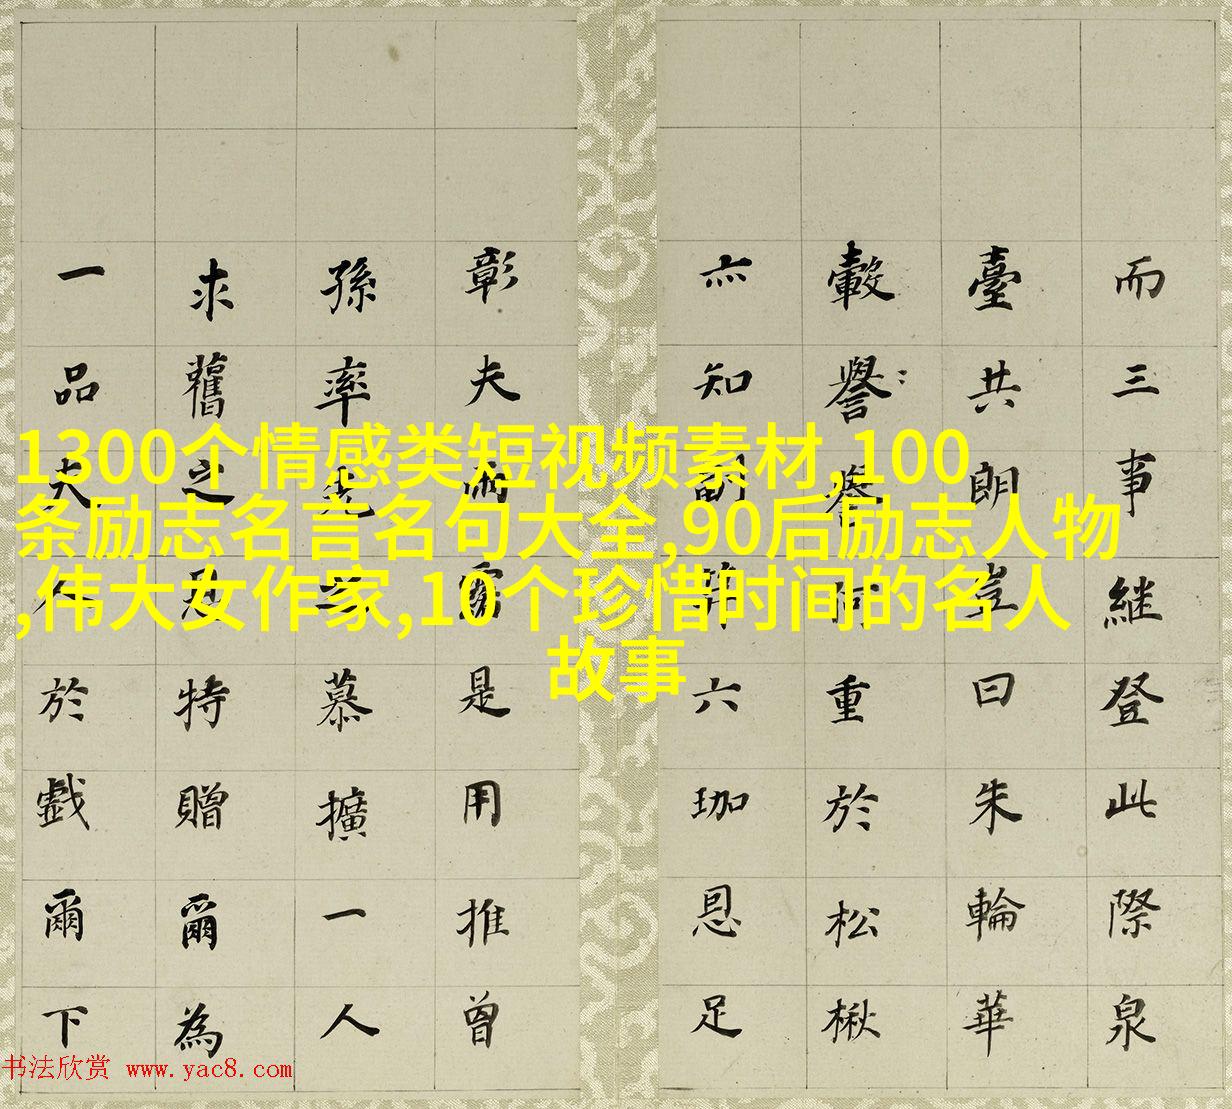 而三事継登此際泉
臺共朗豈曰朱輪華
轂譽何重於松楸
亦知副笄六珈恩足
彰夫雨露是用推曾
孫率先之慕擴一人
求舊之恩特贈爾為
一品夫人於戲爾下
1300个情感类短视频素材,100
条励志名言名句大全,90后励志人物
,伟大女作家,10个珍惜时间的名人
故事
书法欣赏 www.yac8.com